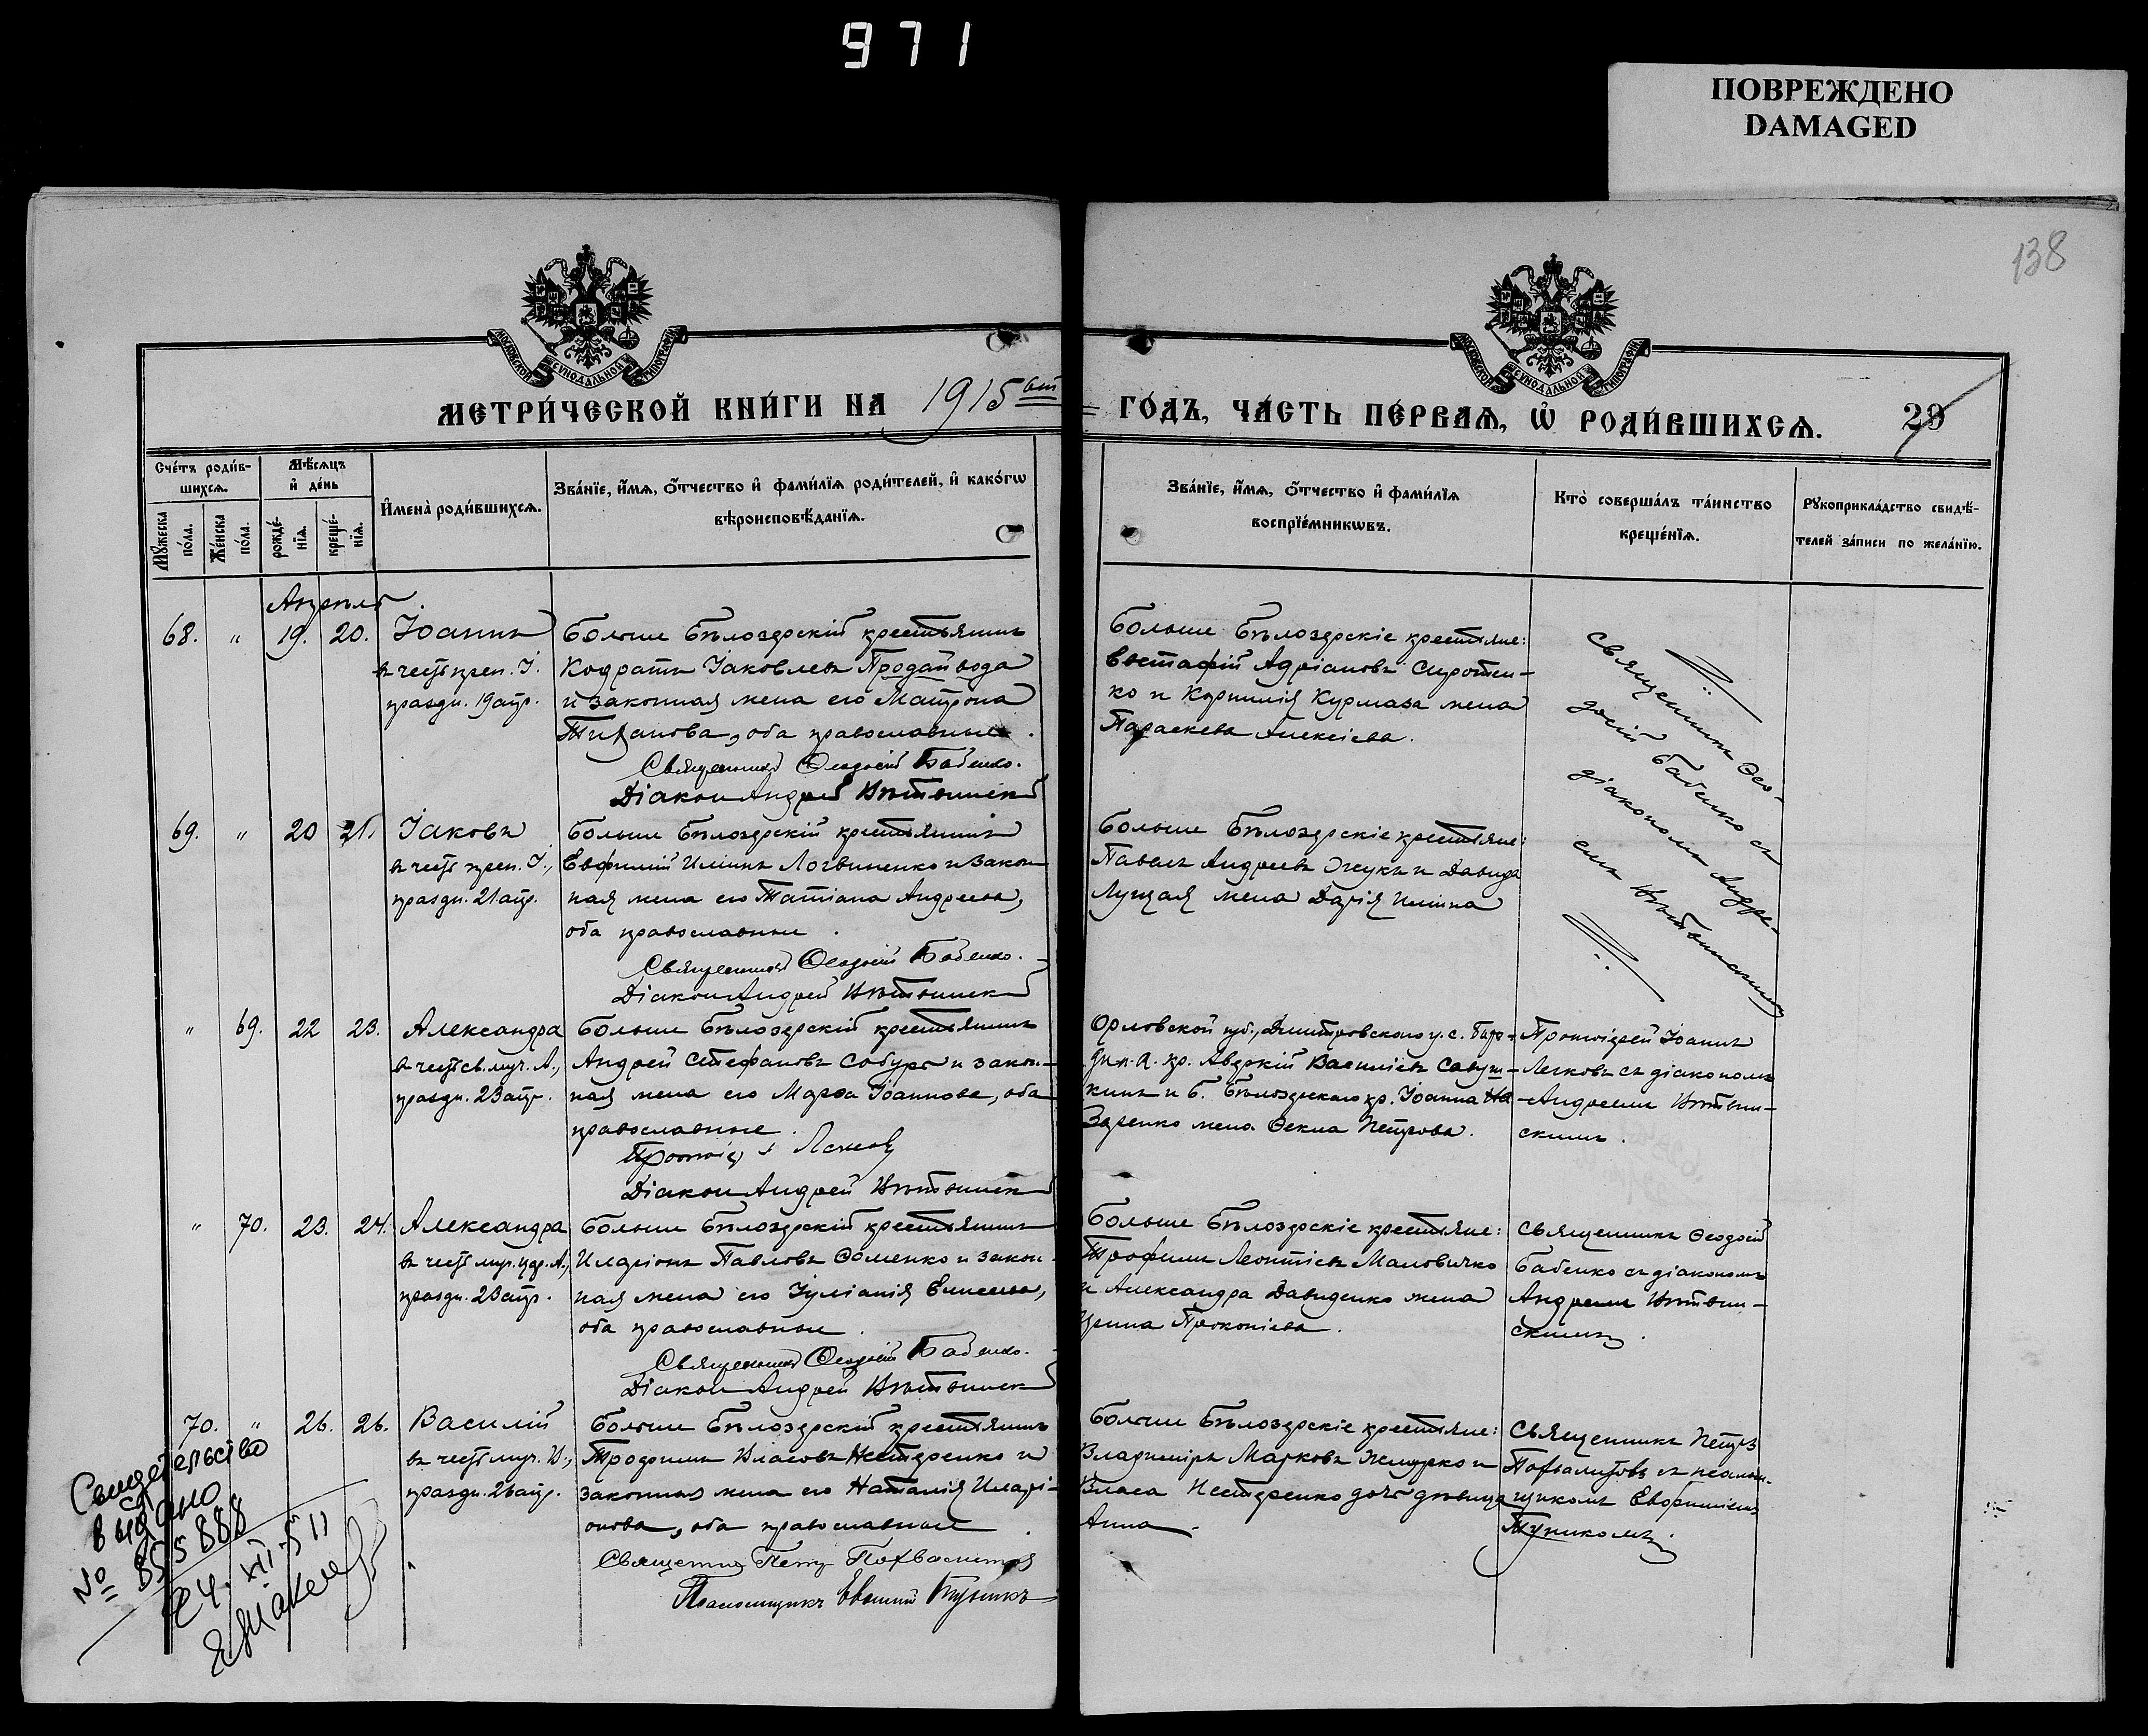 971
ПОВРЕЖДЕНО
DAMAGED
138
МОСКОВСКОЙ СѴНОДАЛЬНОЙ ТИПОГРАФІИ
МОСКОВСКОЙ СѴНОДАЛЬНОЙ ТИПОГРАФІИ
МЕТРИ́ЧЕСКОЙ КНИ́ГИ НА 1915 ый
ГО́ДЪ, ЧА́СТЬ ПЕ́РВАѦ, Ѡ҆ РОДИ́ВШИХСѦ. 29
Сче́тъ роди́в-
шихсѧ.
Мѣ́сѧцъ
и҆ де́нь
И҆мена̀ роди́вшихсѧ.
Зва́нїе, и҆́мѧ, ѻ҆́тчество и҆ фами́лїѧ роди́телей, и҆ како́гѡ
вѣроисповѣ́данїѧ.
Мꙋ́жеска
по́ла.
Же́нска
по́ла.
рожде́-
нїѧ.
креще́-
нїѧ.
Зва́нїе, и҆́мѧ, ѻ҆́тчество и҆ фами́лїѧ
воспрїе́мникѡвъ.
Кто̀ соверша́лъ та́инство
креще́нїѧ.
Рꙋкоприкла́дство свидѣ́-
телей за́писи по жела́нїю.
Апрѣль
68. " 19. 20. Іоаннъ
въ честь преп. І.
праздн. 19 апр.
Больше Бѣлозерскій крестьянинъ
Кодратъ Іаковлевъ Продайвода
и законная жена его Матрона
оба православные.
Священникъ Ѳеодосій Бабенко.
Діаконъ Андрей
Больше Бѣлозерскіе крестьяне:
Евстафій Адріановъ Сиротен-
ко и Корнилія Курмаза жена
Параскева Алексіева.
Священникъ Ѳео-
досій Бабенко съ
діакономъ Андре-
емъ
69. " 20 21. Іаковъ
въ честь преп. І.,
праздн. 21 апр.
Больше Бѣлозерскій крестьянинъ
Евфимій Иліинъ Логвиненко и закон-
ная жена его Татіана Андреева,
оба православные.
Священникъ Ѳеодосій Бабенко.
Діаконъ Андрей
Больше Бѣлозерскіе крестьяне:
Павелъ Андреевъ Жукъ и Давида
Лущая жена Дарія Иліина
" 69. 22 23. Александра
въ честь св. муч. А.,
праздн. 23 апр.
Больше Бѣлозерскій крестьянинъ
Андрей Стефановъ Собург и закон-
ная жена его Марѳа Іоаннова, оба
православные.
Діаконъ Андрей
Орловской губ., Дмитровского у. с.
кр. Аверкій Василіевъ Савуш-
кинъ и Б. Бѣлозерскаго кр. Іоанна На-
заренко жена Ѳекла Петрова.
Протоіерей Іоаннъ
съ діакономъ
Андреемъ
скимъ.
" 70. 23. 24. Александра
въ честь муч. цар. А.,
праздн. 23 апр.
Больше Бѣлозерскій крестьянинъ
Иларіонъ Павловъ Ѳоменко и закон-
ная жена его Іуліанія Елисеева,
оба православные.
Священникъ Ѳеодосій Бабенко.
Діаконъ Андрей
Больше Бѣлозерскіе крестьяне:
Трофимъ Леонтіевъ Маловичко
и Александра Давиденко жена
Ирина Прокопіева.
Священникъ Ѳеодосій
Бабенко съ діакономъ
Андреемъ
скимъ.
70. " 26. 26. Василій
въ честь муч. В.,
праздн. 26 апр.
Больше Бѣлозерскій крестьянинъ
Трофимъ Власовъ Нестеренко и
законная жена его Наталія Иларі-
онова, оба православные.
Псаломщикъ Евѳимій Тупикъ
Больше Бѣлозерскіе крестьяне:
Владиміръ Марковъ Жмурко и
Власа Нестеренко дочь дѣвица
Анна.
Священникъ Петръ
съ псалом-
щикомъ Евфиміемъ
Тупикомъ.
Свидетельство
выдано
№ 855888
24. XII-51